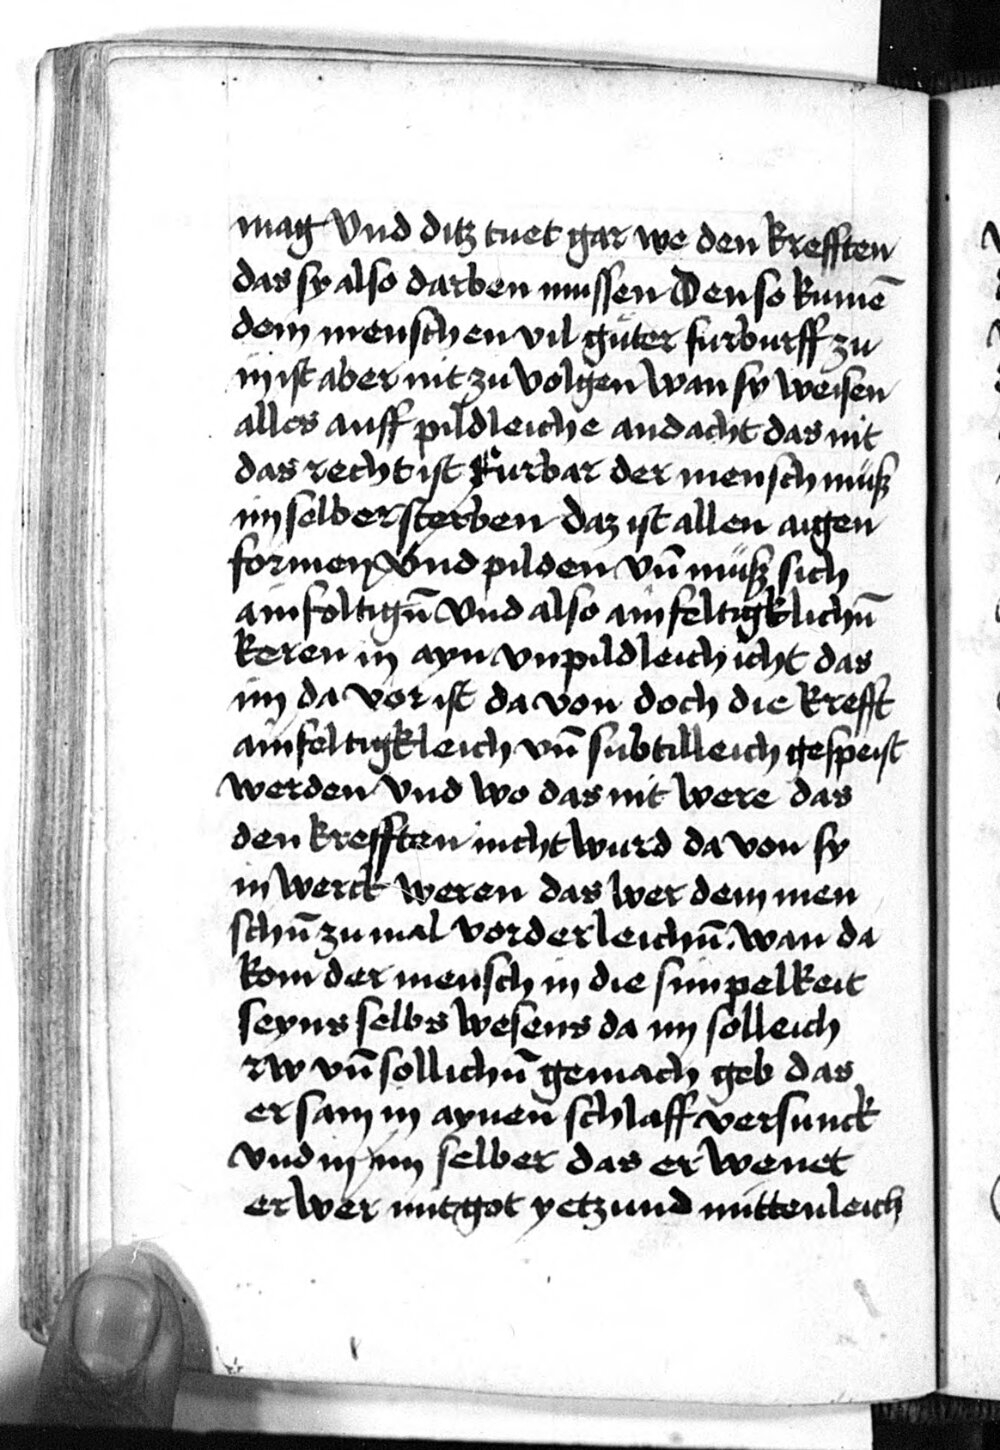 mag Vnd ditz tuet gar we den krefften
das sy also darben mussen Den so kumē
dem menschen vil gůter furburff zu
in ist aber nit zu volgen wan sy weisen
alles auff pildleiche andacht das nit
das recht ist Furbar der mensch můß
im selber sterben daz ist allen aigen
formen Vnd pilden vn̄ můß sich
ainfoltign̄ Vnd also ainfeltigklichn̄
keren in ayn vnpildleich icht das
im da vor ist da von doch die krefft
ainfeltigkleich vn̄ subtilleich gespeist
werden Vnd wo das nit were das
den krefften nicht wurd da von sy
in werck weren das wer dem men
schn̄ zu mal vorderleichn̄. wan da
kom der mensch in die simpelkeit
seyns selbs wesens da im solleich
rw vn̄ sollichn̄ gemach geb das
er sam in aynen schlaff versunck
vnd in im selber das er wenet
er wer mit got yetzund mittenleich